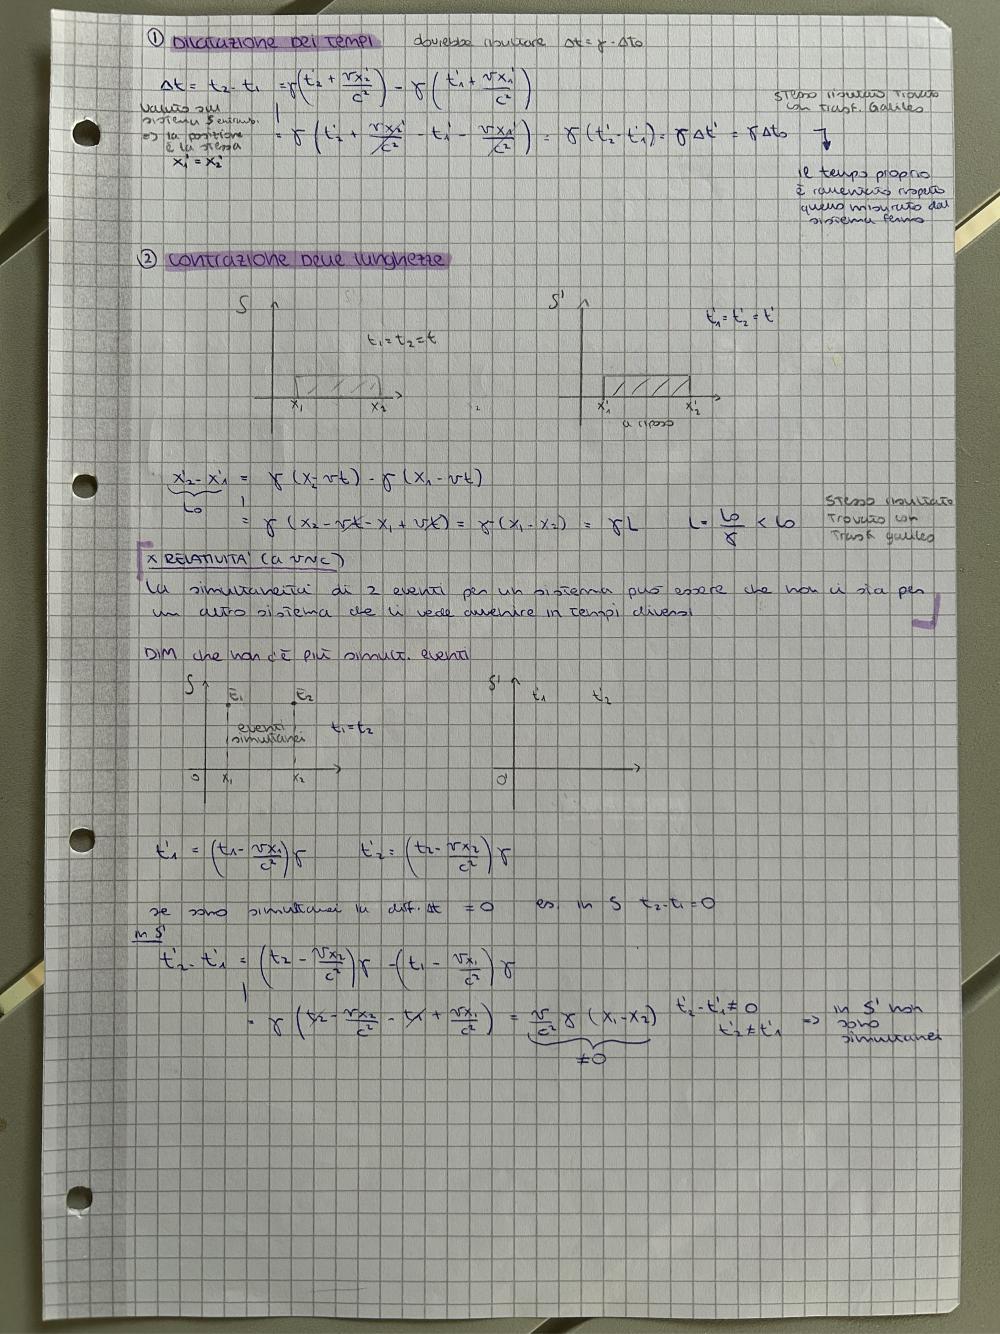 ① DILATAZIONE DEI TEMPI dovrebbe risultare Δt = γ · Δt₀
Δt = t₂ - t₁ = γ(t'₂ + vx'₂/c²) - γ(t'₁ + vx'₁/c²)
stesso risultato trovato
con trasf. Galileo
sistema S
⇒ la posizione
è la stessa
x'₁ = x'₂
= γ(t'₂ + vx'₂/c² - t'₁ - vx'₁/c²) = γ(t'₂ - t'₁) = γΔt' = γΔt₀
il tempo proprio
è rallentato rispetto
quello misurato dal
sistema fermo
② CONTRAZIONE DELLE LUNGHEZZE
S
t₁ = t₂ = t
x₁ x₂
S'
t'₁ = t'₂ = t'
x'₁ x'₂
a riposo
x'₂ - x'₁ = γ(x₂ - vt) - γ(x₁ - vt)
L₀
= γ(x₂ - vt - x₁ + vt) = γ(x₁ - x₂) = γL L = L₀/γ < L₀
stesso risultato
trovato con
trasf. galileo
X RELATIVITÀ (a v~c)
La simultaneità di 2 eventi per un sistema può essere che non ci sia per
un altro sistema che li vede avvenire in tempi diversi
DIM che non c'è più simult. eventi
S
E₁ E₂
eventi
simultanei
t₁ = t₂
O x₁ x₂
S'
t'₁ t'₂
O'
t'₁ = (t₁ - vx₁/c²)γ t'₂ = (t₂ - vx₂/c²)γ
se sono simultanei la diff. Δt = 0 es. in S t₂ - t₁ = 0
in S'
t'₂ - t'₁ = (t₂ - vx₂/c²)γ - (t₁ - vx₁/c²)γ
= γ(t₂ - vx₂/c² - t₁ + vx₁/c²) = v/c² γ(x₁ - x₂) t'₂ - t'₁ ≠ 0
≠ 0
t'₂ ≠ t'₁ ⇒ in S' non
sono
simultanei